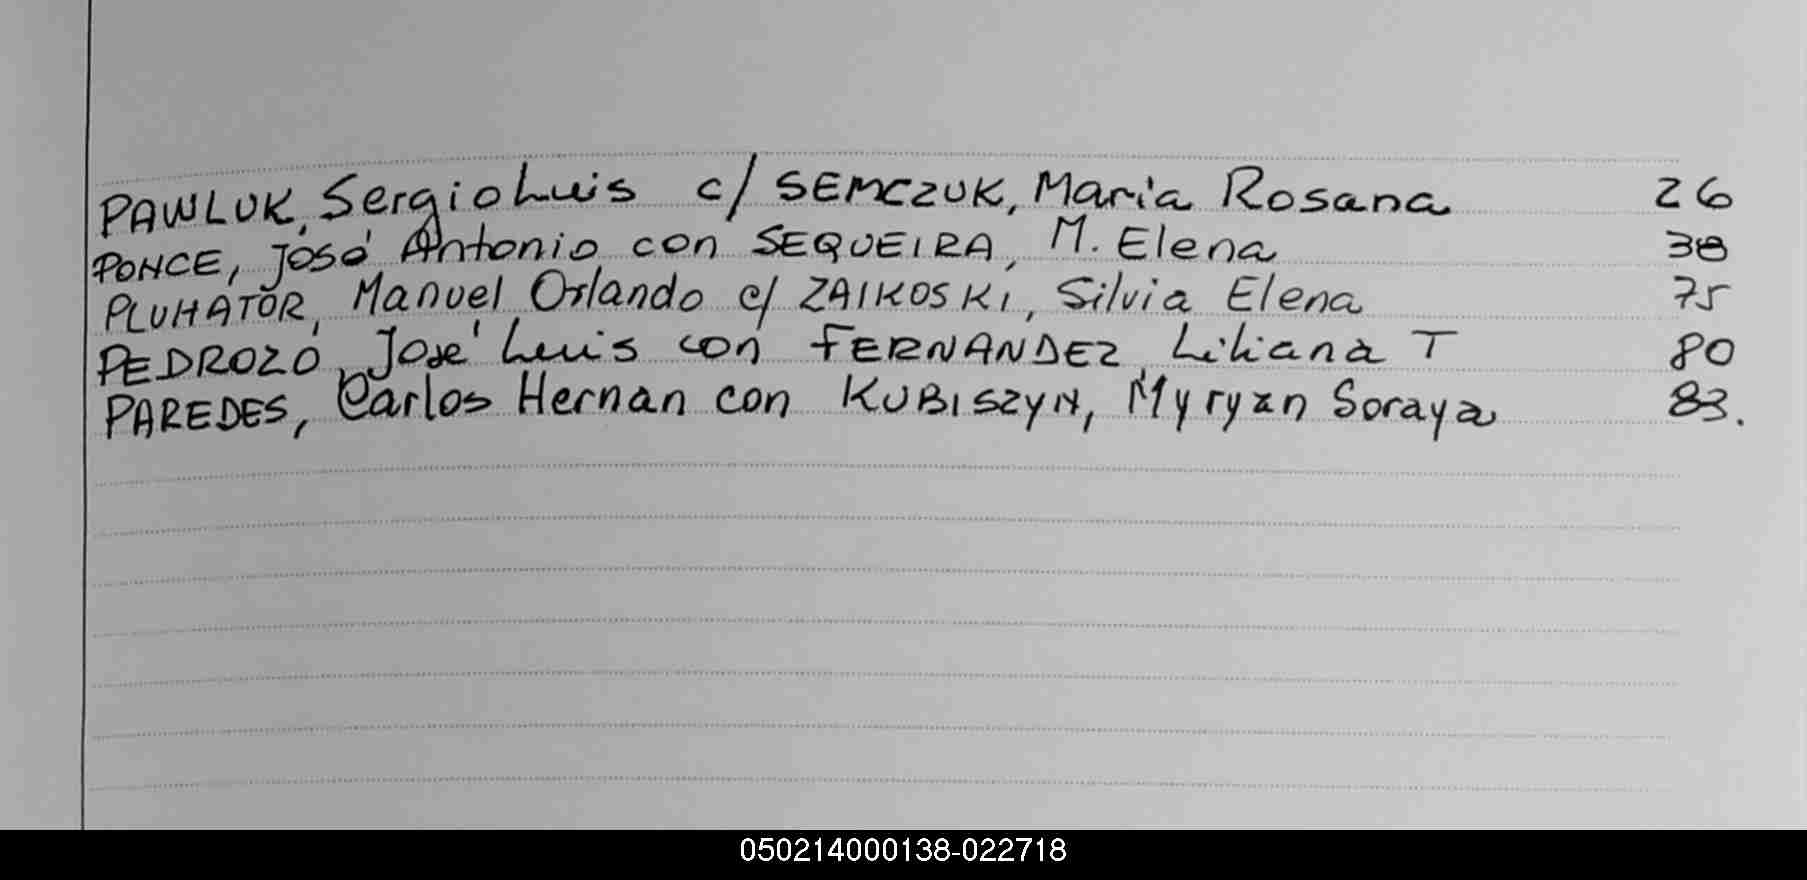 PAWLUK, Sergio Luis c/ SEMCZUK, Maria Rosana 26
PONCE, José Antonio con SEQUEIRA, M. Elena 38
PLUHATOR, Manuel Orlando c/ ZAIKOSKI, Silvia Elena 75
PEDROZO, José Luis con FERNANDEZ, Liliana T 80
PAREDES, Carlos Hernan con KUBISZYN, Myryan Soraya 83.
050214000138-022718